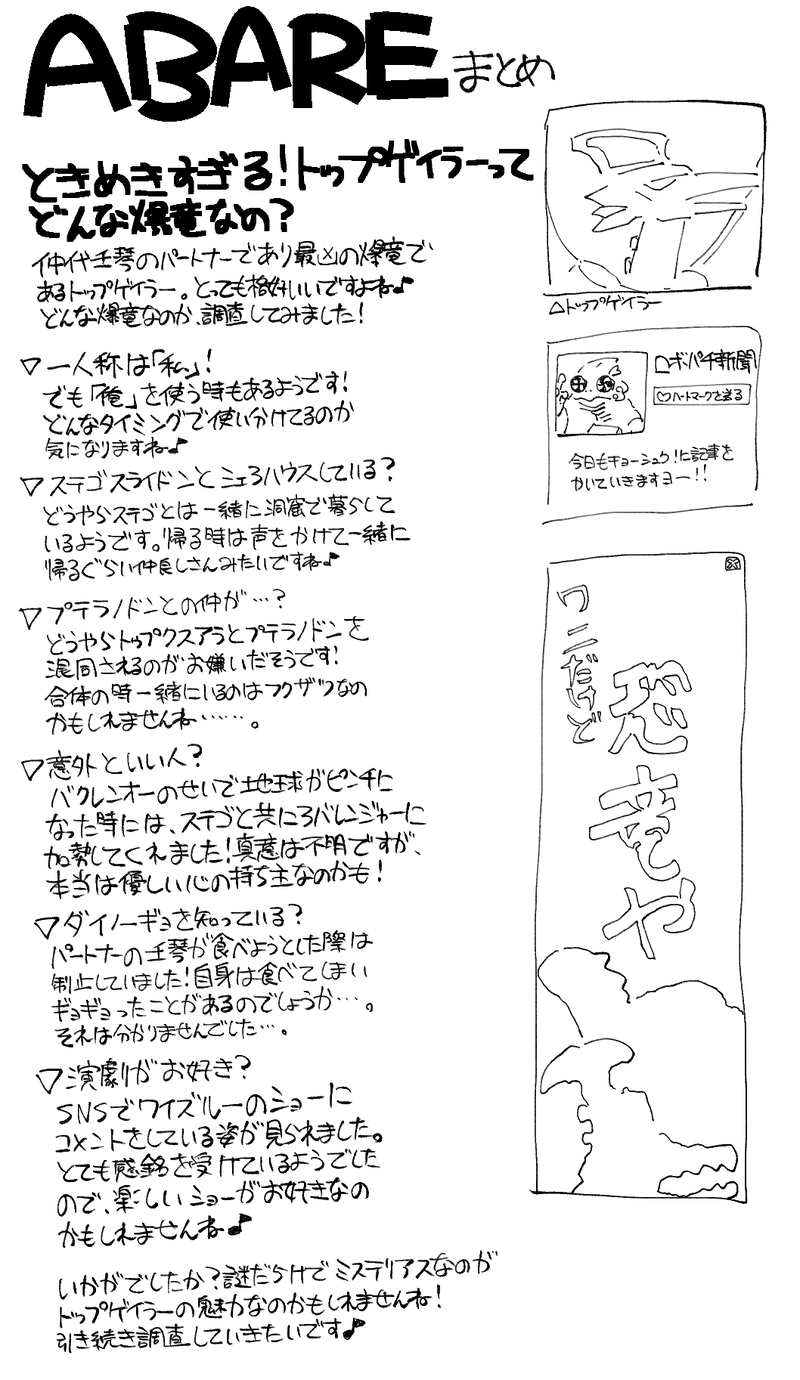 ABARE まとめ
ときめきすぎる！トップゲイラーって
どんな爆竜なの？
仲代壬琴のパートナーであり最凶の爆竜で
あるトップゲイラー。とっても格好いいですよね♪
どんな爆竜なのか、調査してみました！
▽一人称は「私」！
でも「俺」を使う時もあるようです！
どんなタイミングで使い分けてるのか
気になりますね♪
▽ステゴスライドンとシェろハウスしている？
どうやらステゴとは一緒に洞窟で暮らして
いるようです。帰る時は声をかけて一緒に
帰るぐらい仲良しさんみたいですね♪
▽プテラノドンとの仲が…？
どうやらトップクスアラとプテラノドンを
混同されるのがお嫌いだそうです！
合体の時一緒にいるのはフクザツなの
かもしれませんね……。
▽意外といい人？
バクレンオーのせいで地球がピンチに
なった時には、ステゴと共にろバレンジャーに
加勢してくれました！真意は不明ですが、
本当は優しい心の持ち主なのかも！
▽ダイノーギョを知っている？
パートナーの壬琴が食べようとした際は
制止していました！自身は食べてしまい
ギョギョったことがあるのでしょうか…。
それは分かりませんでした…。
▽演劇がお好き？
SNSでワイズルーのショーに
コメントをしている姿が見られました。
とても感銘を受けているようでした
ので、楽しいショーがお好きなの
かもしれませんね♪
いかがでしたか？謎だらけでミステリアスなのが
トップゲイラーの魅力なのかもしれませんね！
引き続き調査していきたいです♪
△トップゲイラー
ロボパチ新聞
♡ハートマークを送る
今日もキョーシュク！に記事を
かいていきますヨー！！
ワニだけど
恐竜や